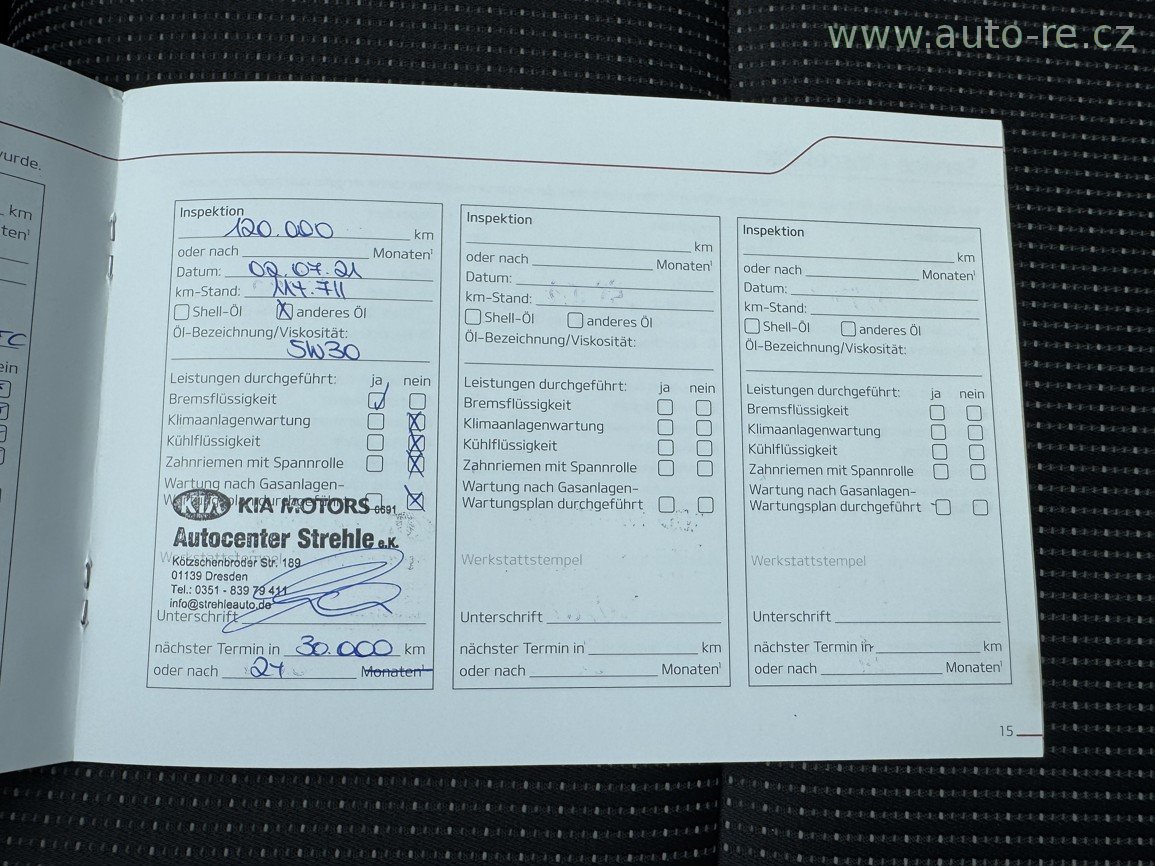 www.auto-re.cz
wurde.
km
ten¹
ein
Inspektion
120.000 km
oder nach Monaten¹
Datum: 02.07.21
km-Stand: 117.711
Shell-Öl X anderes Öl
Öl-Bezeichnung/Viskosität:
5W30
Leistungen durchgeführt: ja nein
Bremsflüssigkeit
Klimaanlagenwartung
Kühlflüssigkeit
Zahnriemen mit Spannrolle
Wartung nach Gasanlagen-
Wartungsplan durchgeführt
KIA KIA MOTORS 6591
Autocenter Strehle e.K.
Werkstattstempel
Kötzschenbroder Str. 189
01139 Dresden
Tel.: 0351 - 839 79 411
info@strehleauto.de
Unterschrift
nächster Termin in 30.000 km
oder nach Monaten¹
Inspektion
km
oder nach Monaten¹
Datum:
km-Stand:
Shell-Öl anderes Öl
Öl-Bezeichnung/Viskosität:
Leistungen durchgeführt: ja nein
Bremsflüssigkeit
Klimaanlagenwartung
Kühlflüssigkeit
Zahnriemen mit Spannrolle
Wartung nach Gasanlagen-
Wartungsplan durchgeführt
Werkstattstempel
Unterschrift
nächster Termin in km
oder nach Monaten¹
Inspektion
km
oder nach Monaten¹
Datum:
km-Stand:
Shell-Öl anderes Öl
Öl-Bezeichnung/Viskosität:
Leistungen durchgeführt: ja nein
Bremsflüssigkeit
Klimaanlagenwartung
Kühlflüssigkeit
Zahnriemen mit Spannrolle
Wartung nach Gasanlagen-
Wartungsplan durchgeführt
Werkstattstempel
Unterschrift
nächster Termin in km
oder nach Monaten¹
15